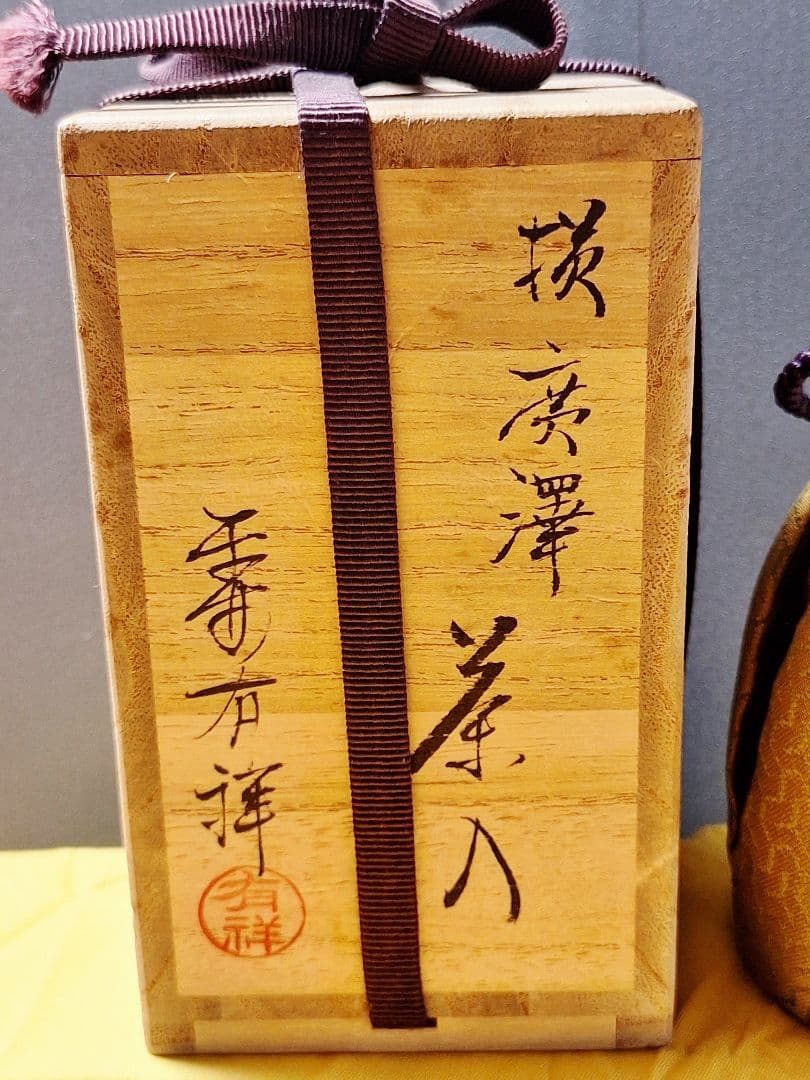 摸廣澤茶入
有祥
有祥